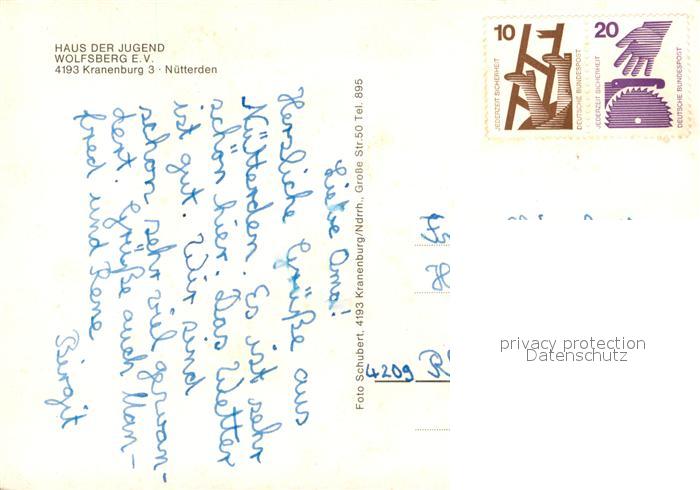 HAUS DER JUGEND
WOLFSBERG E.V.
4193 Kranenburg 3 · Nütterden
10
JEDERZEIT SICHERHEIT
DEUTSCHE BUNDESPOST
20
JEDERZEIT SICHERHEIT
DEUTSCHE BUNDESPOST
Liebe Oma!
Herzliche Grüße aus
Nütterden. Es ist sehr
schön hier. Das Wetter
ist gut. Wir sind
schon sehr viel gewan-
dert. Grüße auch Man-
fred und Rene
Birgit
Foto Schubert, 4193 Kranenburg/Ndrrh., Große Str.50 Tel. 895
4209
privacy protection
Datenschutz